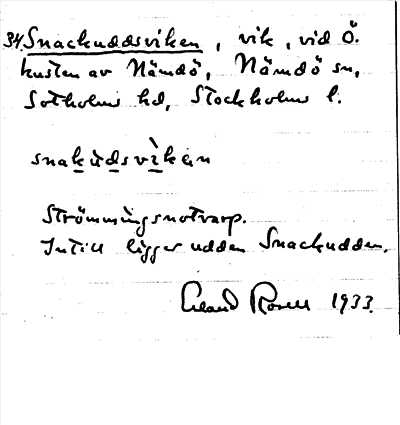 34. Snackuddsviken, vik, vid Ö.
kusten av Nämdö, Nämdö sn,
Sotholms hd, Stockholms l.
snakùdsvìkən
Strömmingsnotvarp.
Intill ligger udden Snackudden.
Erland Rosell 1933.